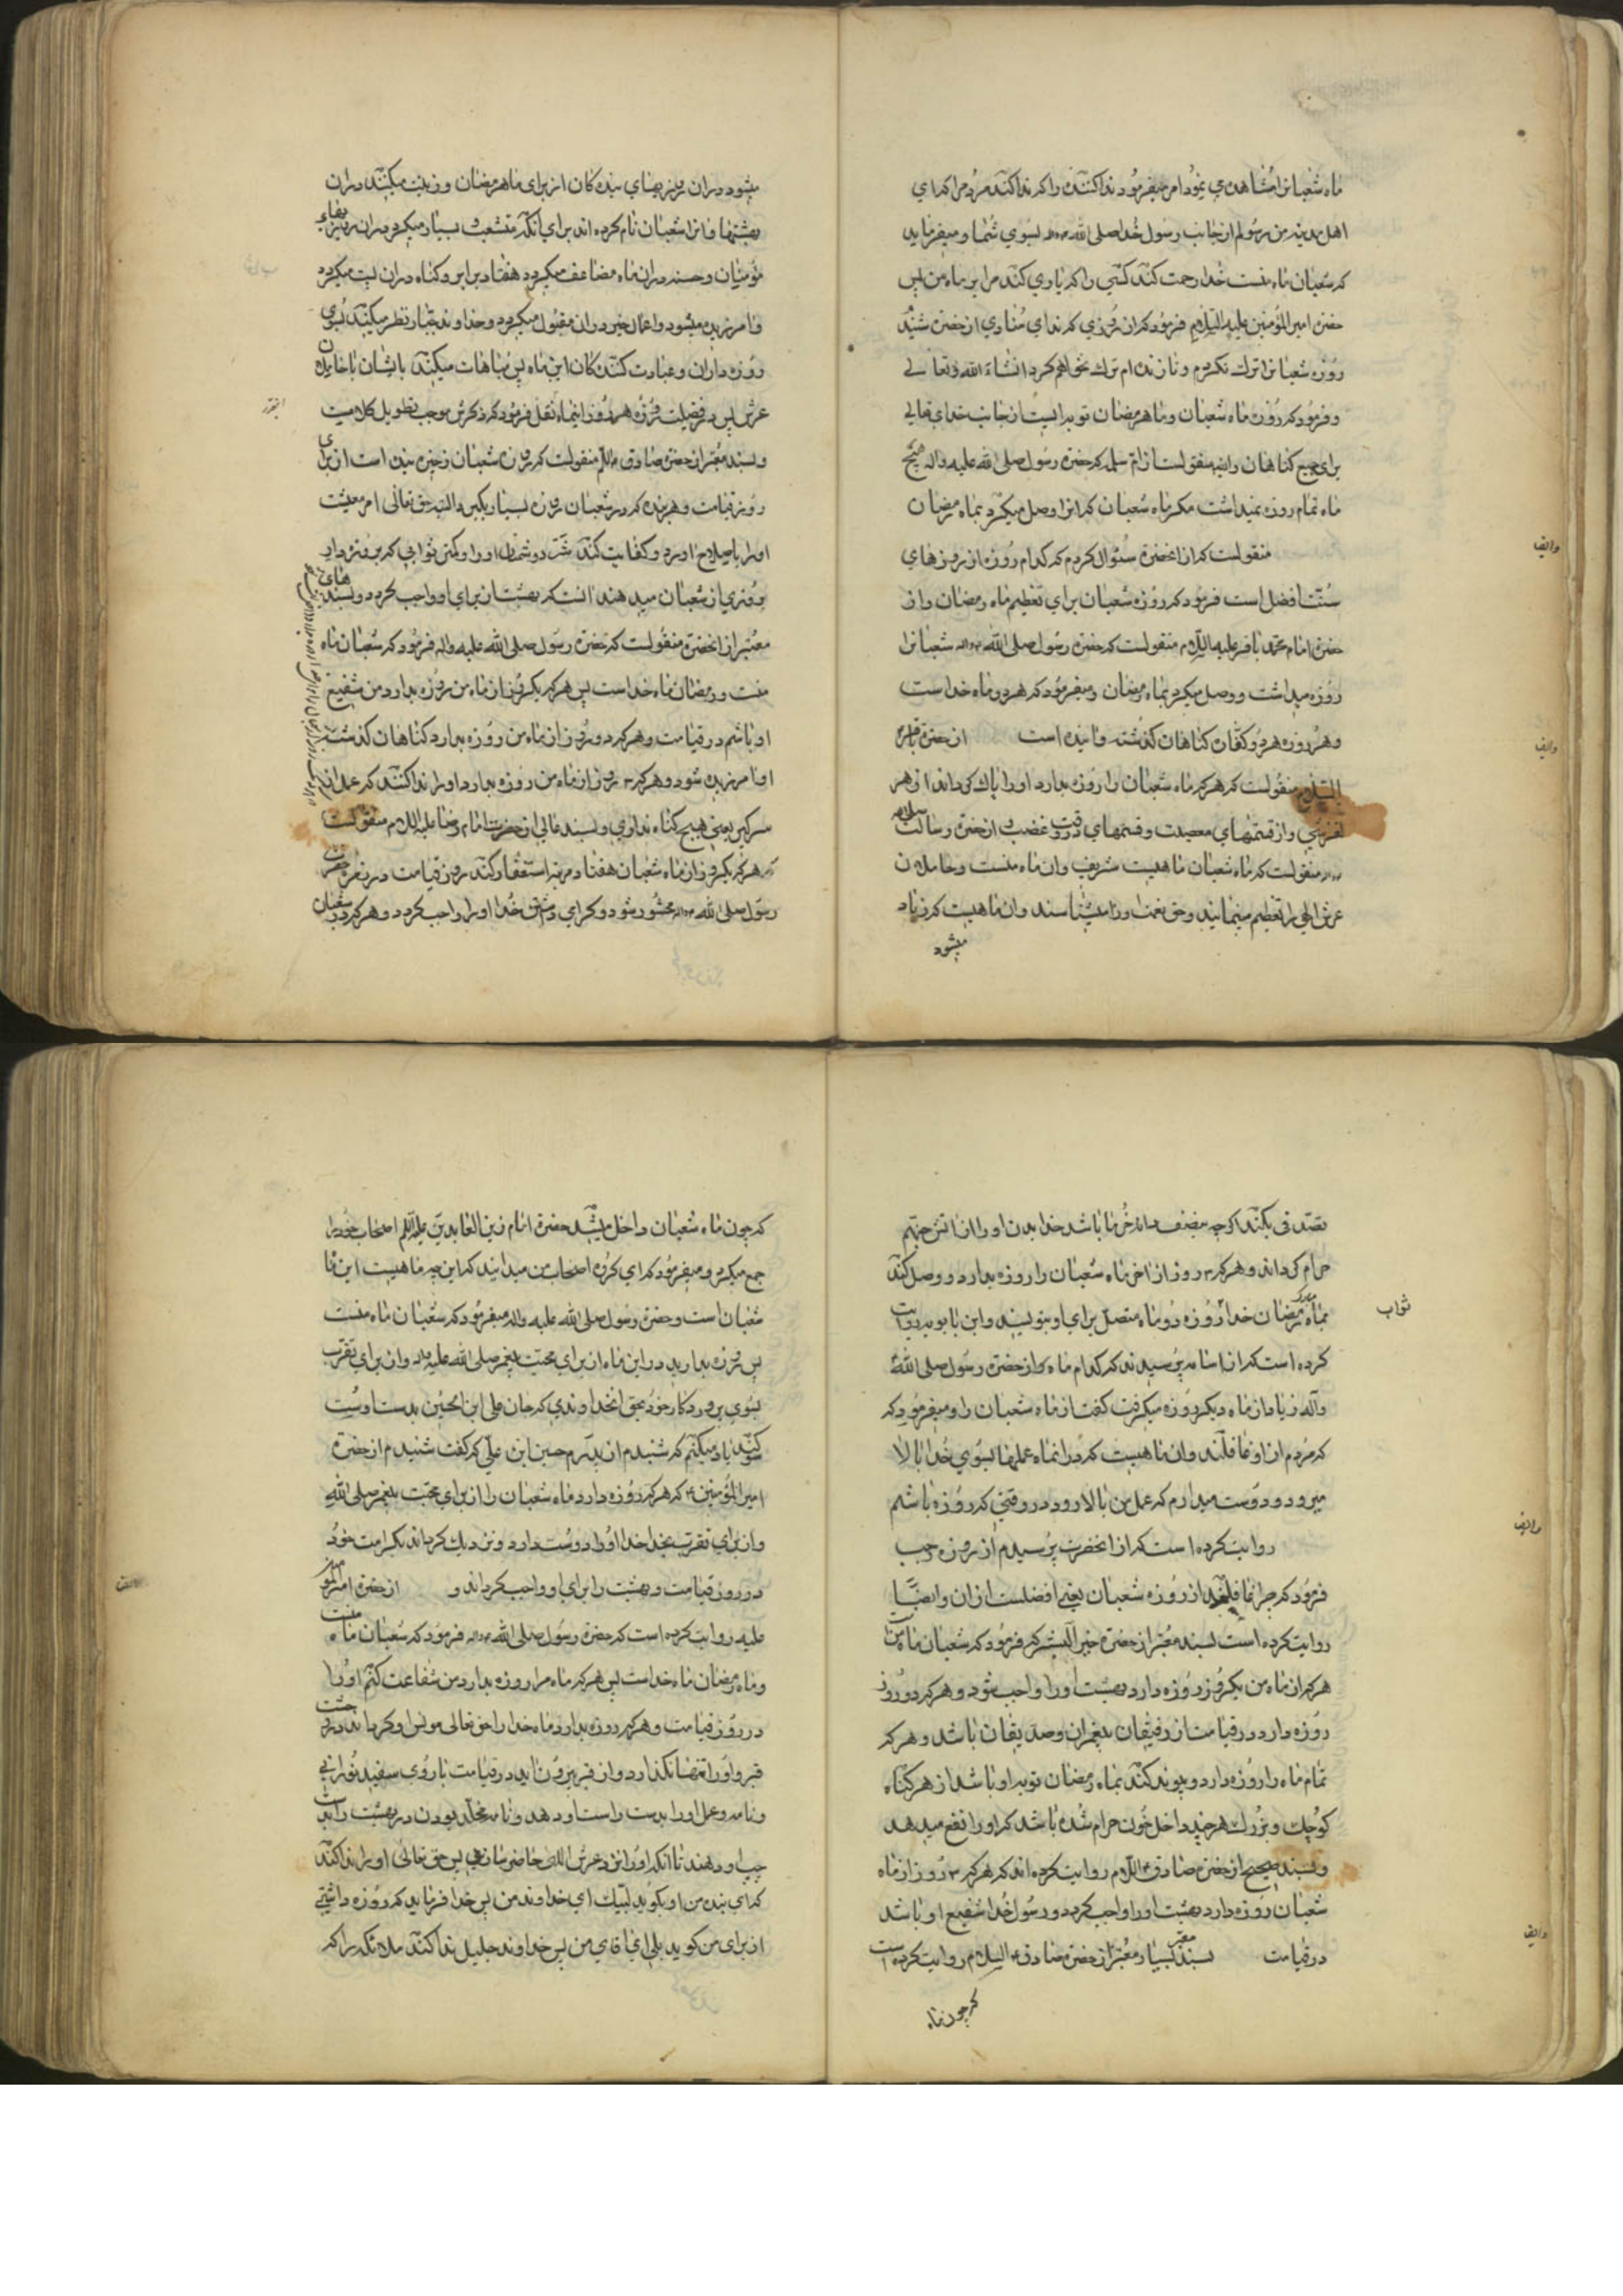 ماه شعبانرا مشاهده می نمود امر میفرمود نداکننده را که نداکند مردمرا که ای
اهل مدینه من رسولم از جانب رسول خدا صلی الله بسوی شما و میفرماید
که شعبان ماه منست خدا رحمت کند کسی را که یاری کند مرا بر ماه من پس
حضرة امیر المؤمنین علیه السلام فرمود که از روزی که ندای منادی آنحضرة شنید
روزه شعبانرا ترک نکردم و تا زنده ام ترک نخواهم کرد انشاء الله تعالی
و فرمود که روزه ماه شعبان و ماه رمضان توبه ایست از جانب خدای تعالی
برای جمیع کناهان و منقولست از ام سلمه که حضرة رسول صلی الله علیه واله هیچ
ماه تمام روزه نمیداشت مکر ماه شعبان که انرا وصل میکرد بماه رمضان
منقولست که از آنحضرة سئوال کردم که کدام روزه از روزهای
سنت افضل است فرمود که روزه شعبان برای تعظیم ماه رمضان و از
حضرة امام محمد باقر علیه السلام منقولست که حضرة رسول صلی الله شعبانرا
روزه میداشت و وصل میکرد بماه رمضان و میفرمود که هر دو ماه خداست
و هر روزه هر دو کفاره کناهان کذشته و آینده است از حضرة
السلام منقولست که هر که ماه شعبان را روزه بدارد او را پاک کرداند از هر
لغزشی و از قسمهای معصیت و قسمهای در وقت غضب و از حضرة رسالت
منقولست که ماه شعبان ماهیست شریف و ان ماه منست و حاملان
عرش الهی را تعظیم مینمایند و حق حرمت او را میشناسند و ان ماهیست که زیاد
میشود
میشود در ان روزیهای بندکان از برای ماه رمضان و زینت میکنند در ان
بهشتها و انرا شعبان نام کرده اند برای آنکه منشعب و بسیار میکردد در ان روزیهای
مؤمنان و حسنه در ان ماه مضاعف میکردد هفتاد برابر و کناه در ان پست میکردد
و آمرزیده میشود و اعمال خیر در ان مقبول میکردد و خداوند جبار نظر میکند بسوی
روزه داران و عبادت کنندکان این ماه پس مباهات میکند بایشان با حاملان
عرش پس در فضیلت روزه هر روز اینماه نقل فرمود که ذکرش موجب تطویل کلامست
و بسند معتبر از حضرة صادق منقولست که روزه شعبان ذخیره بنده است از برای
روز قیامت و هر بنده که در شعبان روزه بسیار بگیرد البته حق تعالی امر معیشت
او را باصلاح اورد و کفایت کند شر دشمنان او را و کمتر ثوابی که بروزه دار
روزی از شعبان میدهند انست که بهشت از برای او واجب کردد و بسندهای
معتبر از آنحضرة منقولست که حضرة رسول صلی الله علیه واله فرمود که شعبان ماه
منست و رمضان ماه خداست پس هر که یکروز از ماه من روزه بدارد من شفیع
او باشم در قیامت و هر که دو روز از ماه من روزه بدارد کناهان کذشته
او آمرزیده شود و هر که ۳ روز از ماه من روزه بدارد او را ندا کنند که عمل از
سر گیر یعنی هیچ کناه نداری و بسند عالی از حضرت امام رضا علیه السلام منقولست
که هر که یکروز از ماه شعبان هفتاد مرتبه استغفار کند روز قیامت در زمره حضرت
رسول صلی الله محشور شود و کرامی داشتن خدا او را واجب کردد و هر که در شعبان
تصدقی بکند اکرچه بنصف دانه خرما باشد خدا بدن او را از اتش جهنم
حرام کرداند و هر که ۳ روز از اخر ماه شعبان را روزه بدارد و وصل کند
بماه مبارک رمضان خدا ثواب روزه دو ماه متصل برای او بنویسد و ابن بابویه روایت
کرده است که از اسامه پرسیدند که کدام ماه بود که حضرة رسول صلی الله علیه
وآله زیاد از ماه دیکر روزه میکرفت کفت از ماه شعبان را و میفرمود که
که مردم از او غافلند و ان ماهیست که در انماه عملها بسوی خدا بالا
میرود و دوست میدارم که عمل من بالا رود در وقتی که روزه باشم
روایت کرده است که از انحضرت پرسیدم از روزه رجب
فرمود که چرا غافلید از روزه شعبان یعنی افضلست از ان و ایضا
روایت کرده است بسند معتبر از حضرة خیر البشر که فرمود که شعبان ماه منست
هر که از ماه من یکروز روزه دارد بهشت او را واجب شود و هر که دو روز
روزه دارد در قیامت از رفیقان پیغمبران و صدیقان باشد و هر که
تمام ماه را روزه دارد و پیوند کند بماه رمضان توبه او باشد از هر کناه
کوچک و بزرک هر چند داخل خون حرام شده باشد که او را نفع میدهد
و بسند صحیح از حضرة صادق السلام روایت کرده اند که هر که ۳ روز از ماه
شعبان روزه دارد بهشت او را واجب کردد و رسول خدا شفیع او باشد
در قیامت بسند بسیار معتبر از حضرة صادق السلام روایت کرده است
که چون ماه
که چون ماه شعبان داخل میشد حضرة امام زین العابدین علیه السلام اصحاب خود را
جمع میکرد و میفرمود که ای کروه اصحاب من میدانید که این چه ماهیست این ماه
شعبان است و حضرة رسول صلی الله علیه واله میفرمود که شعبان ماه منست
پس روزه بدارید در این ماه از برای محبت پیغمبر صلی الله علیه واله و از برای تقرب
بسوی پروردکار خود بحق انخداوندی که جان علی ابن الحسین بدست اوست
سوکند یاد میکنم که شنیدم از پدرم حسین ابن علی که کفت شنیدم از حضرة
امیر المؤمنین ع که هر که روزه دارد ماه شعبان را از برای محبت پیغمبر صلی الله
و از برای تقرب بخدا خدا او را دوست دارد و نزدیک کرداند بکرامت خود
در روز قیامت و بهشت را برای او واجب کرداند و از حضرة امیر المؤمنین
علیه روایت کرده است که حضرة رسول صلی الله فرمود که شعبان ماه منست
و ماه رمضان ماه خداست پس هر که ماه مرا روزه بدارد من شفاعت کنم او را
در روز قیامت و هر که روزه بدارد ماه خدا را حق تعالی مونس او کرداند در وحشت
قبر و او را تنها نکذارد و از قبر بیرون آید در قیامت با روی سفید نورانی
و نامه عمل او را بدست راست او دهد و نامه مخلد بودن در بهشت را بدست
چپ او دهند تا آنکه او را نزد عرش الهی حاضر سازند پس حق تعالی او را ندا کند
که ای بنده من او بکوید لبیک ای خداوند من پس خدا فرماید که روزه داشتی
از برای من کوید بلی ای آقای من پس خداوند جلیل ندا کند ملائکه را که